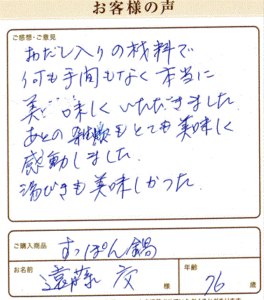 お客様の声
ご感想・ご意見
おだし入りの材料で
何も手間もなく本当に
美味しくいただきました
あとの雑炊もとても美味しく
感動しました
湯びきも美味しかった
ご購入商品
すっぽん鍋
お名前
遠藤 様
年齢
76 歳